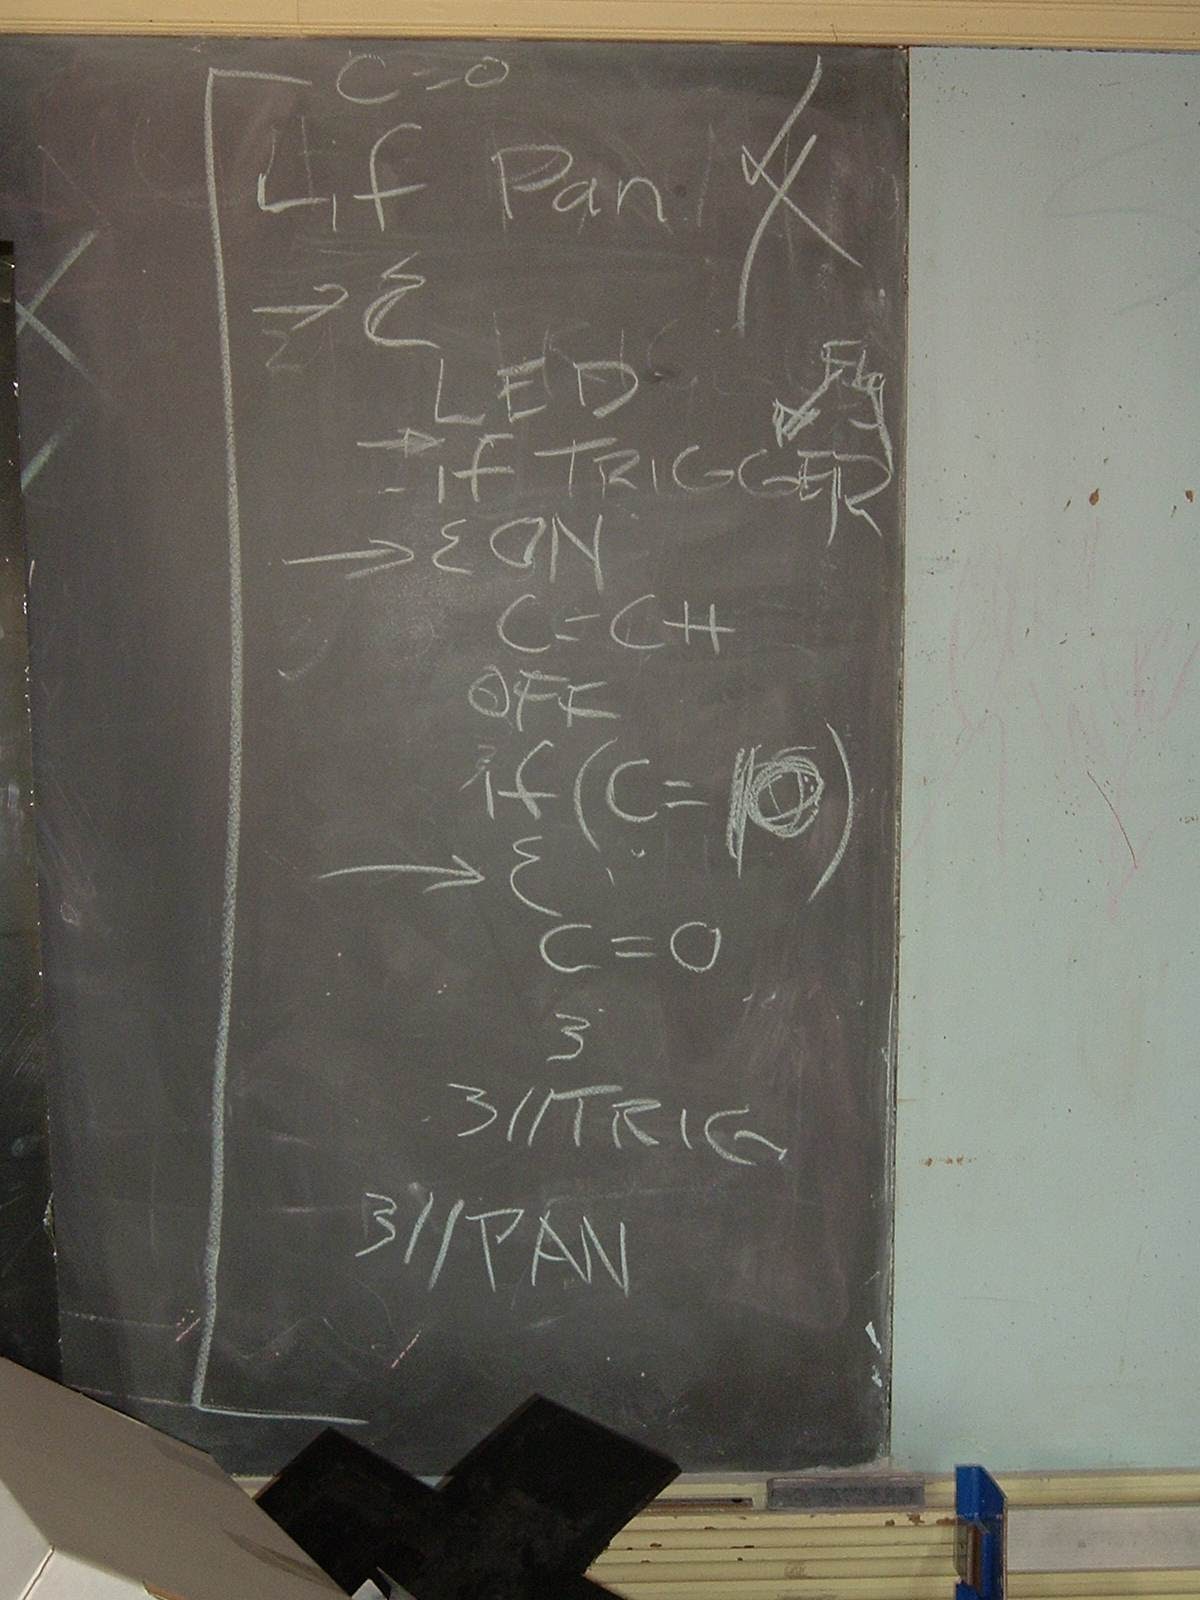 C=0
if Pan
{
LED
if TRIGGER
{ ON
C=C++
OFF
if (C=10)
{
C=0
}
}//TRIG
}//PAN